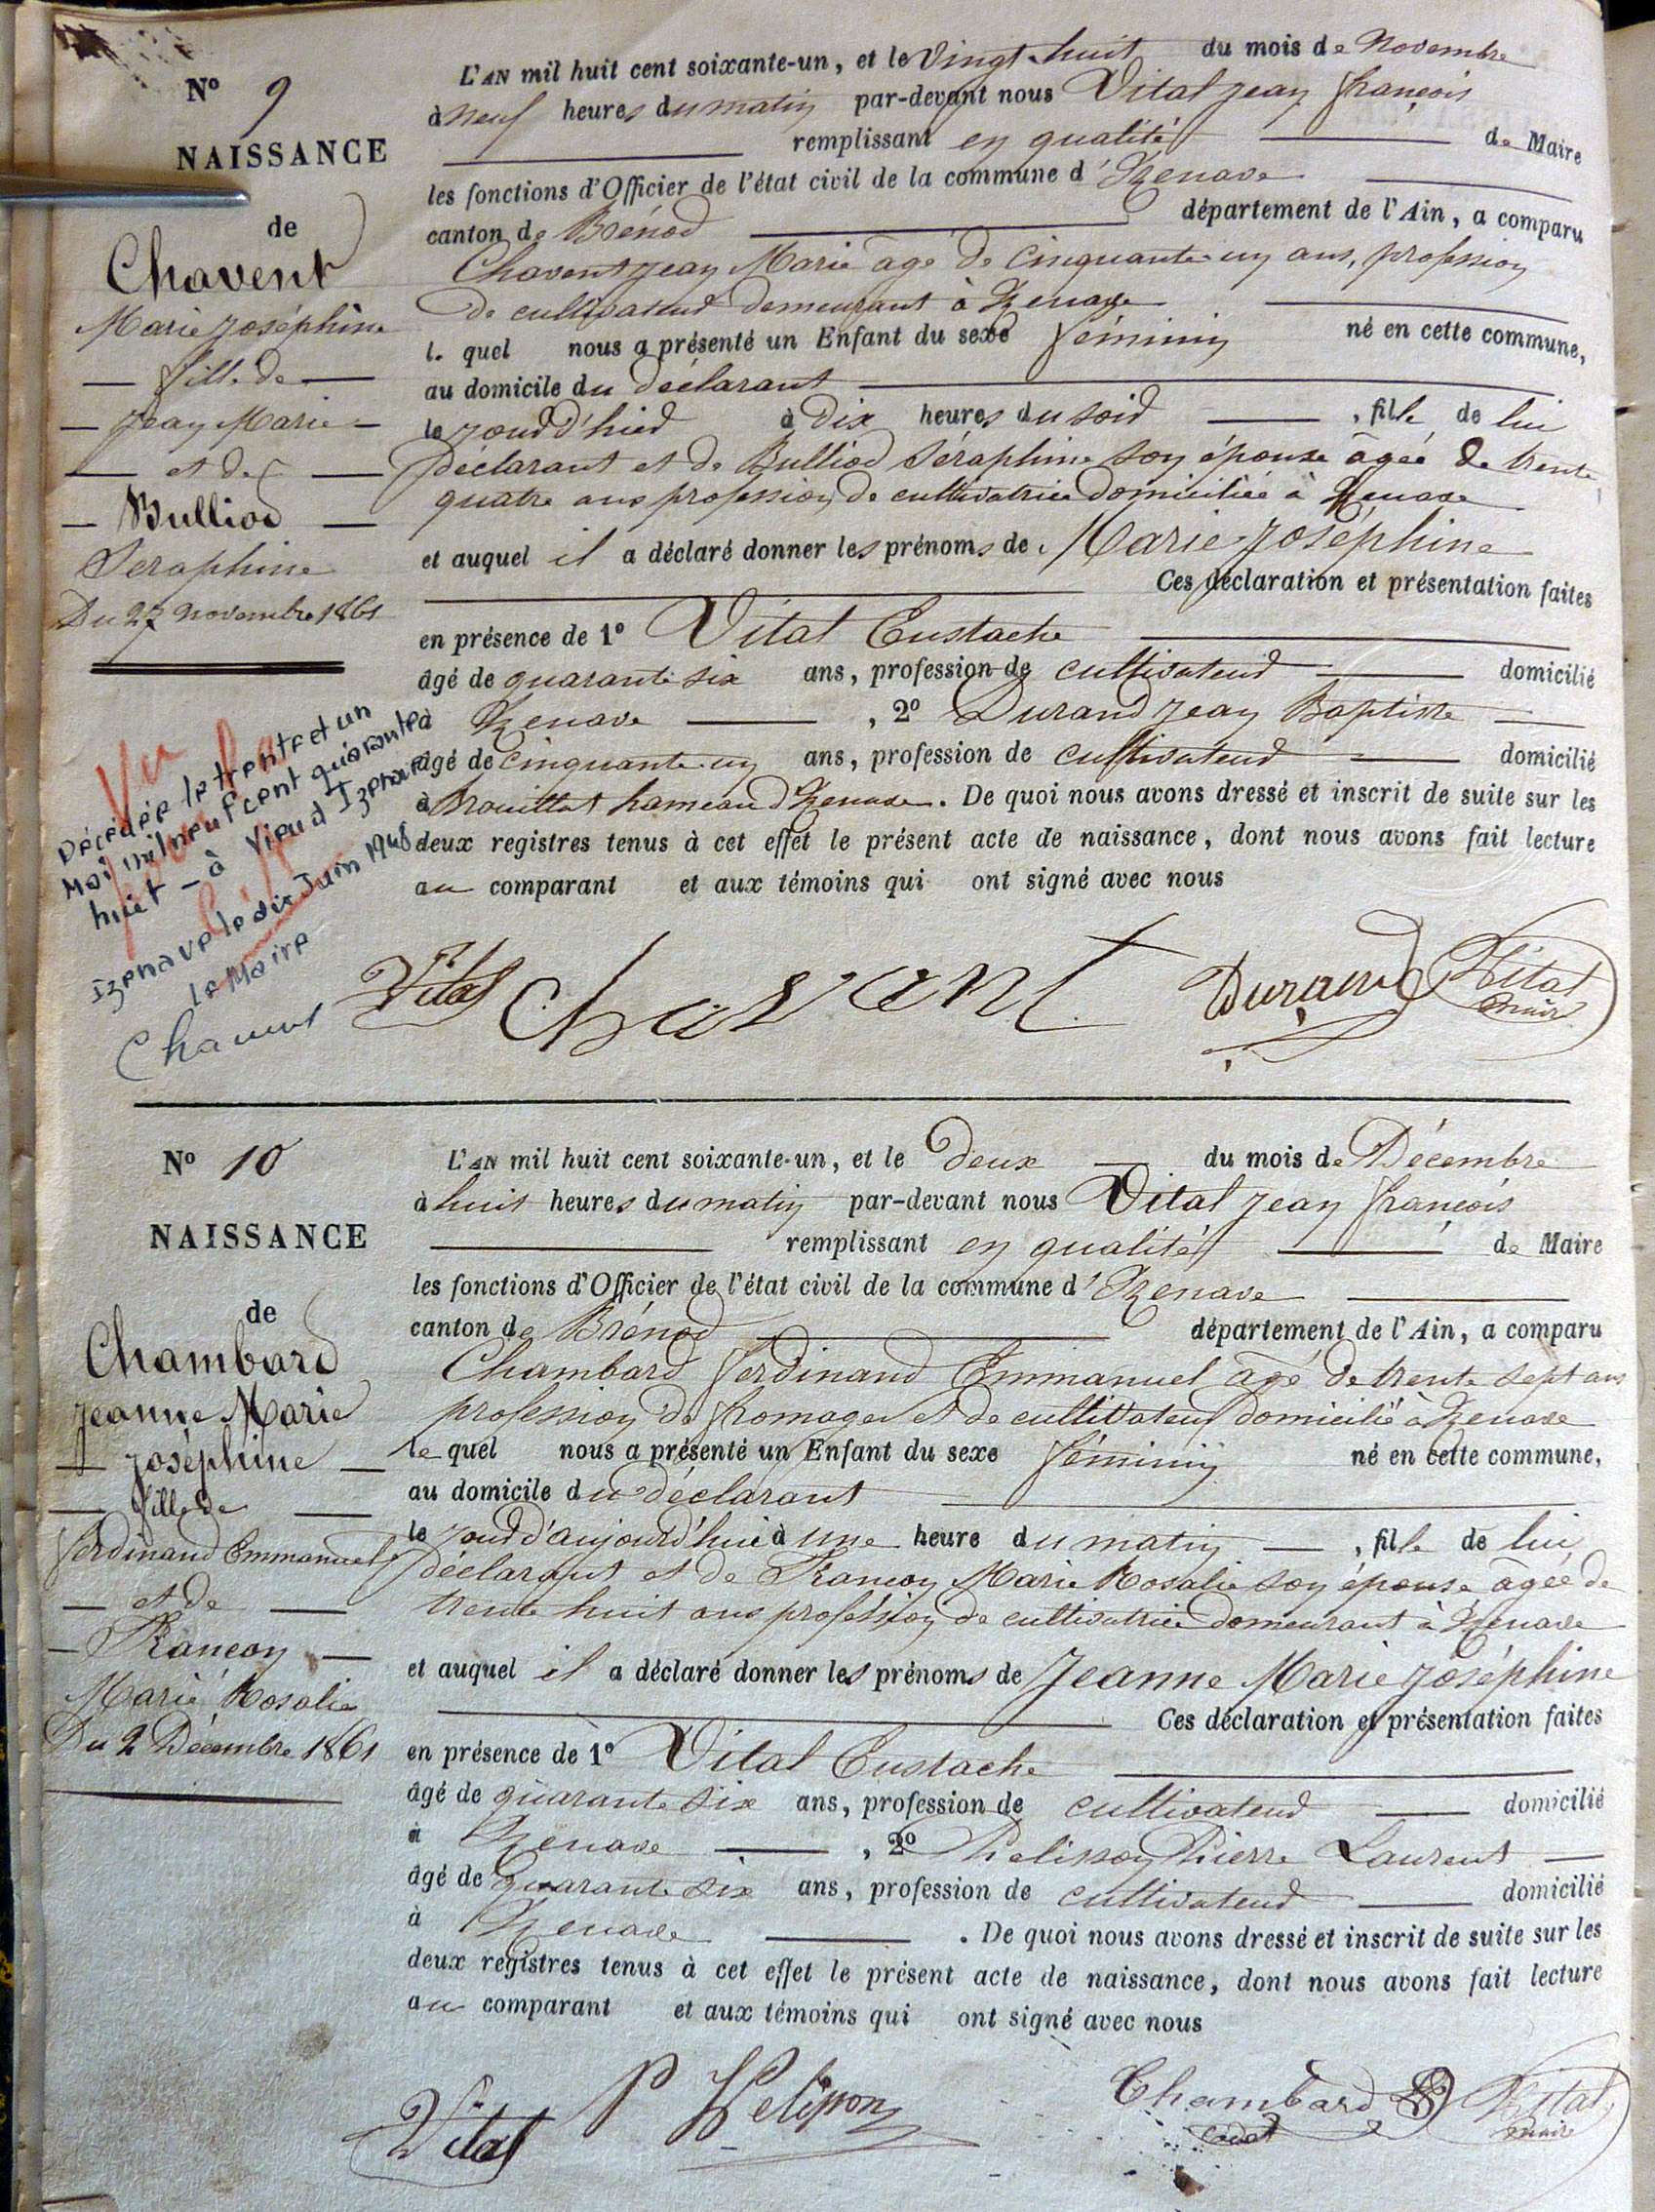 N° 9
NAISSANCE
de
Chavent
Marie Joséphine
fille de
Jean Marie
et de
Bulliod
Séraphine
Du 27 novembre 1861
Décédée le trente et un
Mai mil neuf cent quarante
huit - à Vieu d'Izenave
Izenave le dix Juin 1948
Le Maire
Chavent
L'AN mil huit cent soixante-un, et le Vingt-huit du mois de Novembre
à neuf heures du matin par-devant nous Vital Jean François
remplissant en qualité de Maire
les fonctions d'Officier de l'état civil de la commune d'Izenave
canton de Brénod département de l'Ain, a comparu
Chavent Jean Marie âgé de Cinquante-un ans, profession
de cultivateur demeurant à Izenave
l. quel nous a présenté un Enfant du sexe féminin né en cette commune,
au domicile du déclarant
le jour d'hier à Dix heures du soir, fille de lui
déclarant et de Bulliod Séraphine son épouse âgée de trente
quatre ans profession de cultivatrice domiciliée à Izenave
et auquel il a déclaré donner les prénoms de Marie Joséphine
Ces déclaration et présentation faites
en présence de 1° Vital Eustache
âgé de quarante six ans, profession de cultivateur domicilié
à Izenave, 2° Durand Jean Baptiste
âgé de cinquante-un ans, profession de cultivateur domicilié
à hameau d'Izenave. De quoi nous avons dressé et inscrit de suite sur les
deux registres tenus à cet effet le présent acte de naissance, dont nous avons fait lecture
au comparant et aux témoins qui ont signé avec nous
Vital Chavent Durand Vital
maire
N° 10
NAISSANCE
de
Chambard
Jeanne Marie
Joséphine
fille de
Ferdinand Emmanuel
et de
Marie Rosalie
Du 2 Décembre 1861
L'AN mil huit cent soixante-un, et le Deux du mois de Décembre
à huit heures du matin par-devant nous Vital Jean François
remplissant en qualité de Maire
les fonctions d'Officier de l'état civil de la commune d'Izenave
canton de Brénod département de l'Ain, a comparu
Chambard Ferdinand Emmanuel âgé de trente sept ans
profession de fromager et de cultivateur domicilié à Izenave
le quel nous a présenté un Enfant du sexe féminin né en cette commune,
au domicile du déclarant
le jour d'aujourd'hui à une heure du matin, fille de lui
déclarant et de Marie Rosalie son épouse âgée de
trente huit ans profession de cultivatrice demeurant à Izenave
et auquel il a déclaré donner les prénoms de Jeanne Marie Joséphine
Ces déclaration et présentation faites
en présence de 1° Vital Eustache
âgé de quarante six ans, profession de cultivateur domicilié
à Izenave, 2° Pelisson Pierre Laurent
âgé de quarante six ans, profession de cultivateur domicilié
à Izenave. De quoi nous avons dressé et inscrit de suite sur les
deux registres tenus à cet effet le présent acte de naissance, dont nous avons fait lecture
au comparant et aux témoins qui ont signé avec nous
Vital P Pelisson Chambard Vital
maire